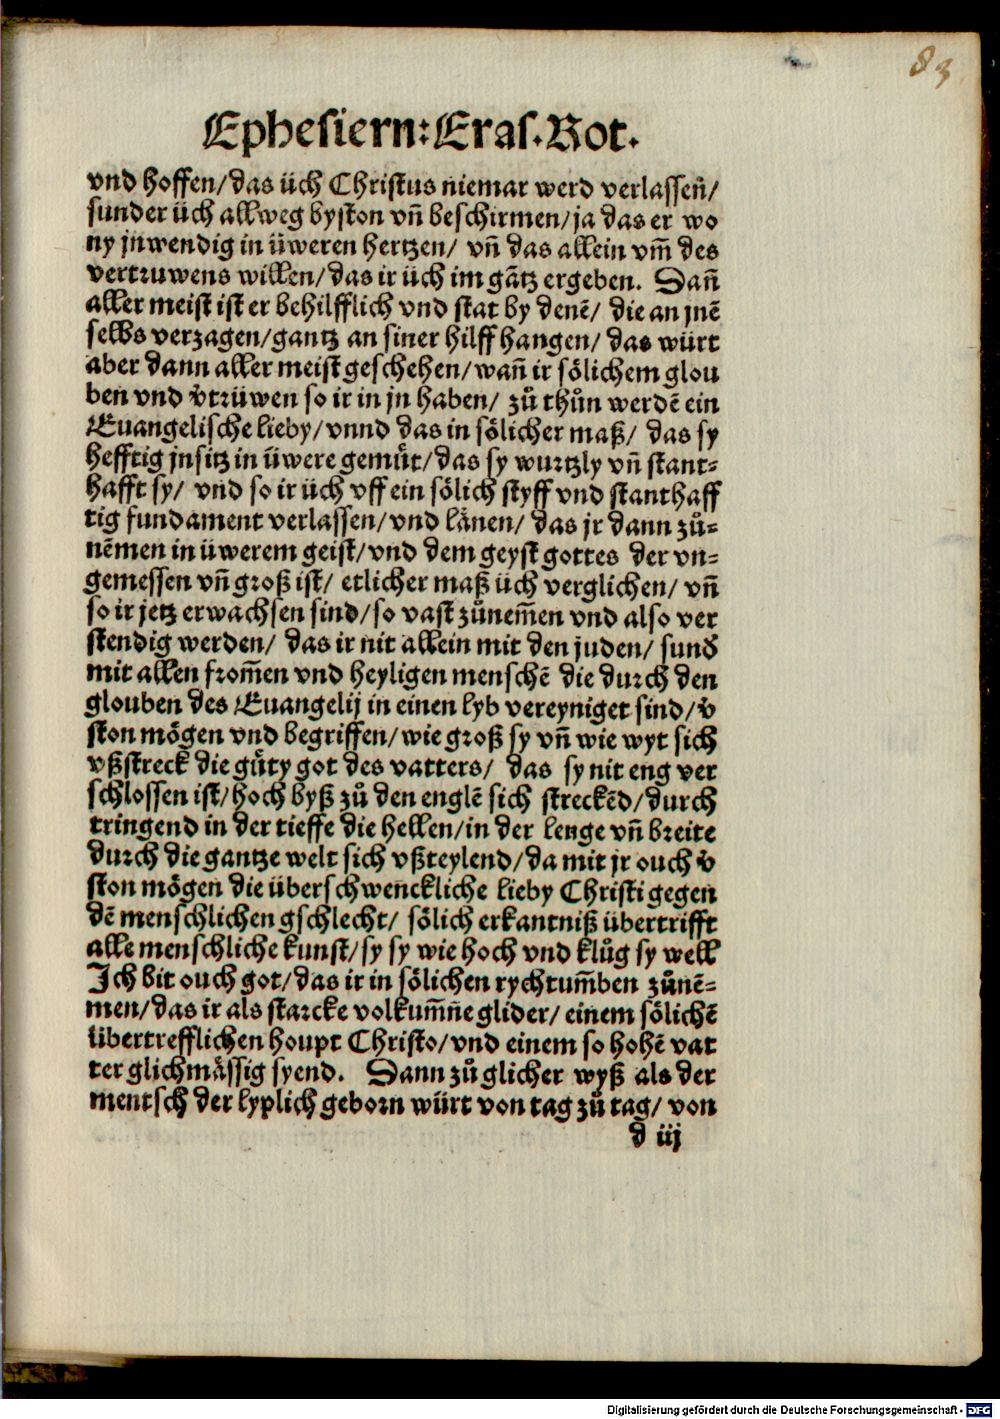 83
Ephesiern: Eras. Rot.
vnd hoffen/ das üch Christus niemar werd verlassen̄/
sunder üch allweg byston vn̄ beschirmen/ ja das er wo
ny jnwendig in üweren hertzen/ vn̄ das allein vm̄ des
vertruwens willen/ das ir üch im gātz ergeben. Dan̄
aller meist ist er behilfflich vnd stat by denē/ die an jnē
selbs verzagen/ gantz an siner hilff hangen/ das würt
aber dann aller meist geschehen/ wan̄ ir sölichem glou
ben vnd v̄trüwen so ir in jn haben/ zů thůn werdē ein
Euangelische lieby/ vnnd das in sölicher maß/ das sy
hefftig jnsitz in üwere gemůt/ das sy wurtzly vn̄ stant⸗
hafft sy/ vnd so ir üch vff ein sölich styff vnd stanthaff
tig fundament verlassen/ vnd länen/ das jr dann zů⸗
nēmen in üwerem geist/ vnd dem geyst gottes der vn⸗
gemessen vn̄ groß ist/ etlicher maß üch verglichen/ vn̄
so ir jetz erwachsen sind/ so vast zůnem̄en vnd also ver
stendig werden/ das ir nit allein mit den juden/ sund̄
mit allen from̄en vnd heyligen menschē die durch den
glouben des Euangelij in einen lyb vereyniget sind/ v̄
ston mögen vnd begriffen/ wie groß sy vn̄ wie wyt sich
vßstreck die gůty got des vatters/ das sy nit eng ver
schlossen ist/ hoch byß zů den englē sich streckēd/ durch
tringend in der tieffe die hellen/ in der lenge vn̄ breite
durch die gantze welt sich vßteylend/ da mit jr ouch v̄
ston mögen die überschwenckliche lieby Christi gegen
dē menschlichen gschlecht/ sölich erkantniß übertrifft
alle menschliche kunst/ sy sy wie hoch vnd klůg sy well
Ich bit ouch got/ das ir in sölichen rychtum̄ben zůnē⸗
men/ das ir als starcke volkum̄ne glider/ einem sölichē
übertrefflichen houpt Christo/ vnd einem so hohē vat
ter glichmässig syend. Dann zů glicher wyß als der
mentsch der lyplich geborn würt von tag zů tag/ von
d iij
Digitalisierung gefördert durch die Deutsche Forschungsgemeinschaft - DFG